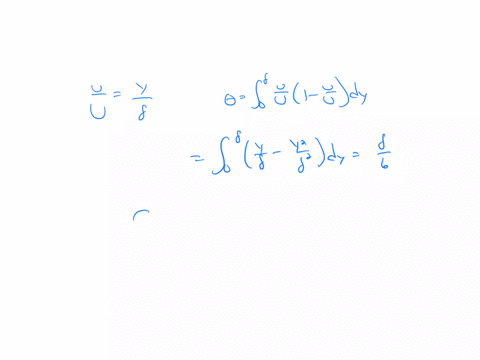 u/U = y/δ    θ = ∫₀^δ u/U (1 - u/U) dy
= ∫₀^δ (y/δ - y²/δ²) dy = δ/6